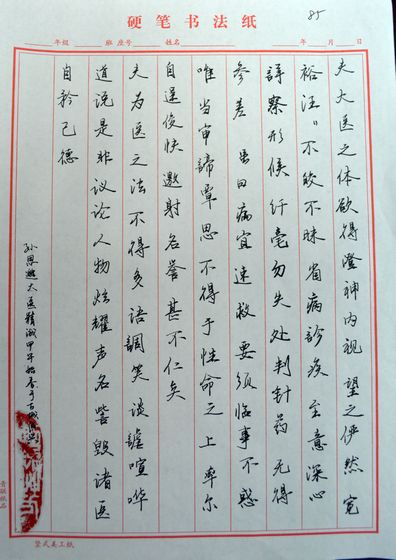 硬笔书法纸
85
年级 班 座号 姓名 年 月 日
夫大医之体欲得澄神内视望之俨然宽
裕汪〃不皎不昧省病診疾至意深心
詳察形候纤毫勿失处判针药无得
参差虽曰病宜速救要须临事不惑
唯当审諦覃思不得于性命之上率尔
自逞俊快邀射名誉甚不仁矣
夫为医之法不得多语調笑谈謔喧哗
道说是非议论人物炫耀声名訾毁诸医
自矜己德
孙思邈大医精诚甲午始春于百
竖式美工纸